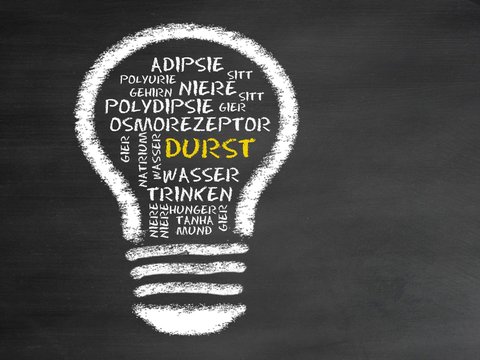 ADIPSIE
POLYURIE SITT
GEHIRN NIERE SITT
POLYDIPSIE GIER
OSMOREZEPTOR
GIER NATRIUM WASSER DURST
WASSER
TRINKEN
NIERE NIERE HUNGER GIER
TANHA
MUND